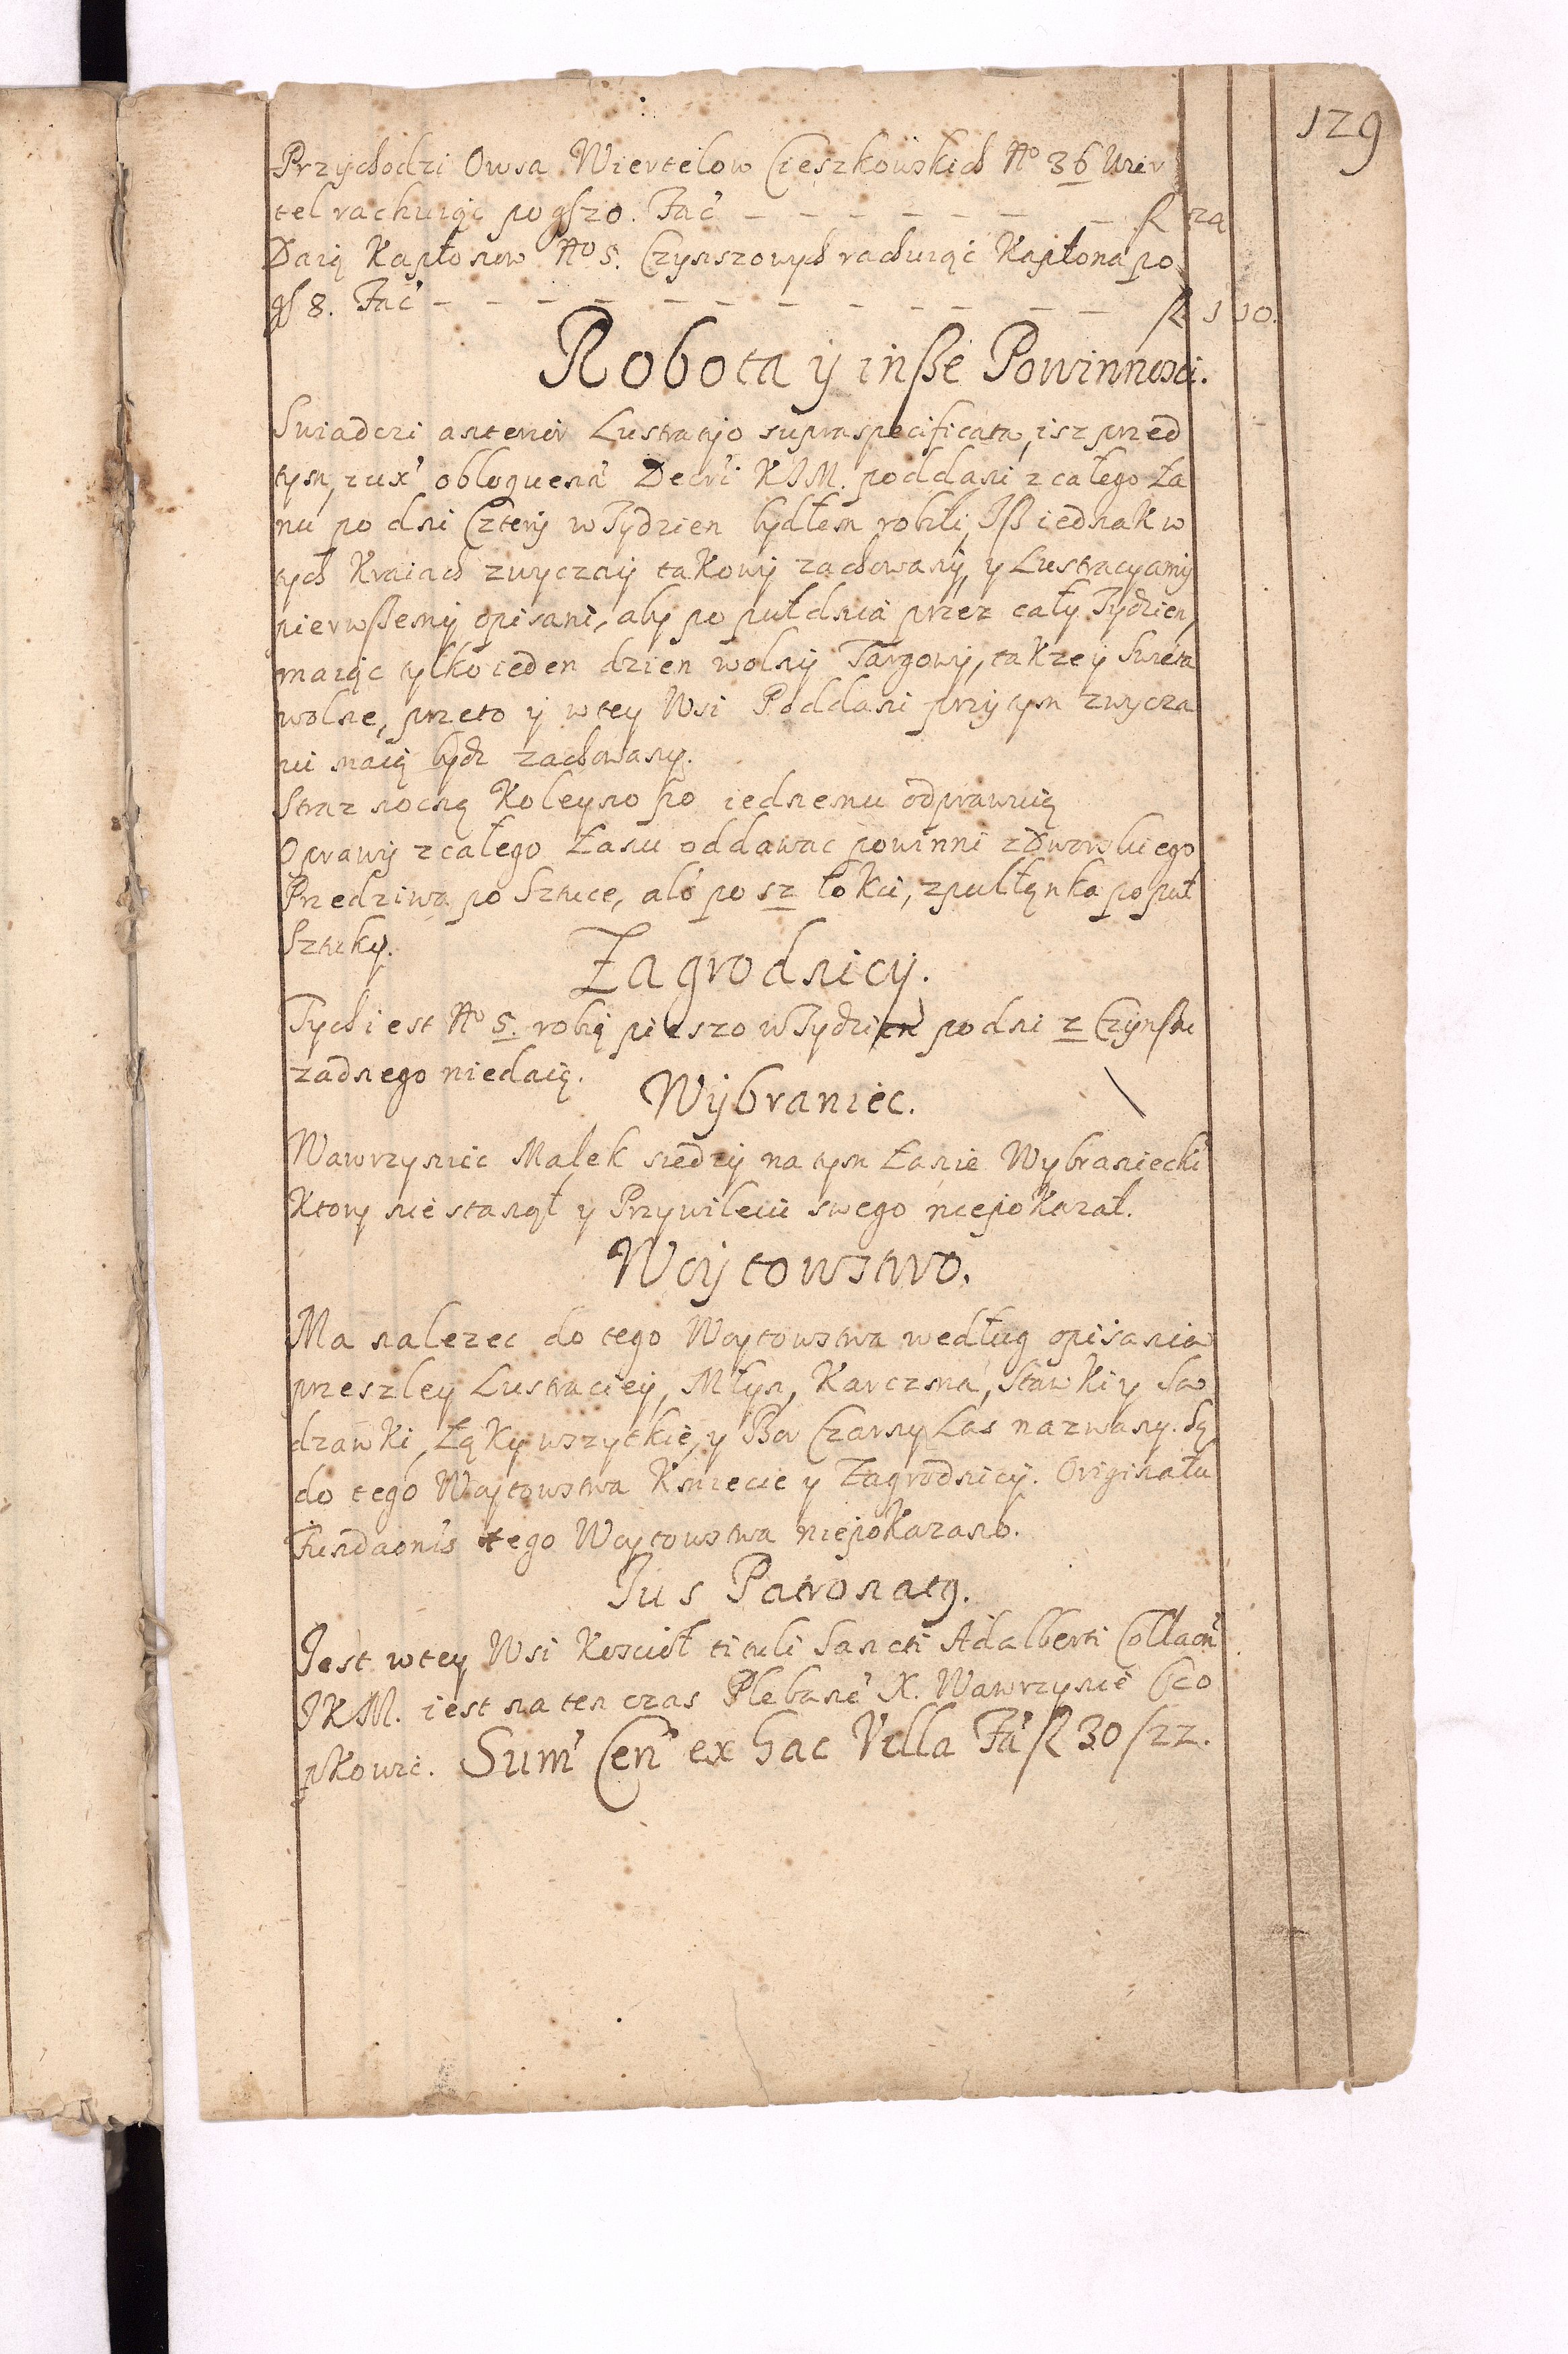 129
Przychodzi Owsa Wiertelow Cięszkowskich No 36 Wier
tel rachuiąc po gſ 20. Fać – – – – – – – – ſl 24
Daią Kapłonow No 5. Czynszowych rachuiąc Kapłona po
gſ 8. Fać – – – – – – – – – – – – ſl 1 10.
Robota ÿ inſze Powinnosci.
Swiadczi anterior Lustratio supraspecificata, isz przed
tym, iux' obloquenn' Decrti KJM. poddani z całego Ła
nu po dni Cztery w Tydzien bydłem robili, Jſz iednak w
tych Kraiach zwyczay takowy zachowany, y Lustracyamy
pierwſzemy opisani, aby po puł dnia przez cały Tydzien,
maiąc tylko ieden dzien wolny Targowy, takze y Swieta
wolne, przeto y w tey Wsi Poddani przy tym zwycza
iu maią bydz zachowany.
Straz nocną Koleyno po iednemu odprawuią
Oprawy z całego Łanu oddawac powinni z Dworskiego
Przedziwa po Sztuce, alo po 12 łokci, z pułłanka po puł
Sztuky.
Zagrodnicy.
Tych iest No 5. robią pieszo w Tydzien po dni 2 Czynſzu
zadnego niedaią.
Wybraniec.
Wawrzyniec Małek siedzy na tym Łanie Wybraniecki
Ktory nie stanął y Przywileiu swego niepokazał.
Woytowstwo.
Ma nalezec do tego Woytowstwa według opisania
przeszley Lustraciey, Młyn, Karczma, Stawki y Sa
dzawki, Łąky wszytkie, y Bor Czarny Las nazwany. Są
do tego Woytowstwa Kmiecie y Zagrodnicy. Originału
Fundaonis tego Woytowstwa niepokazano.
Jus Patronatq.
Jest w tey Wsi Kosciół tituli Sancti Adalberti Collaon'
JKM. iest na ten czas Plebane' X. Wawrzynie
Sum' Cen' ex hac Villa Fa' ſl 30 /22.